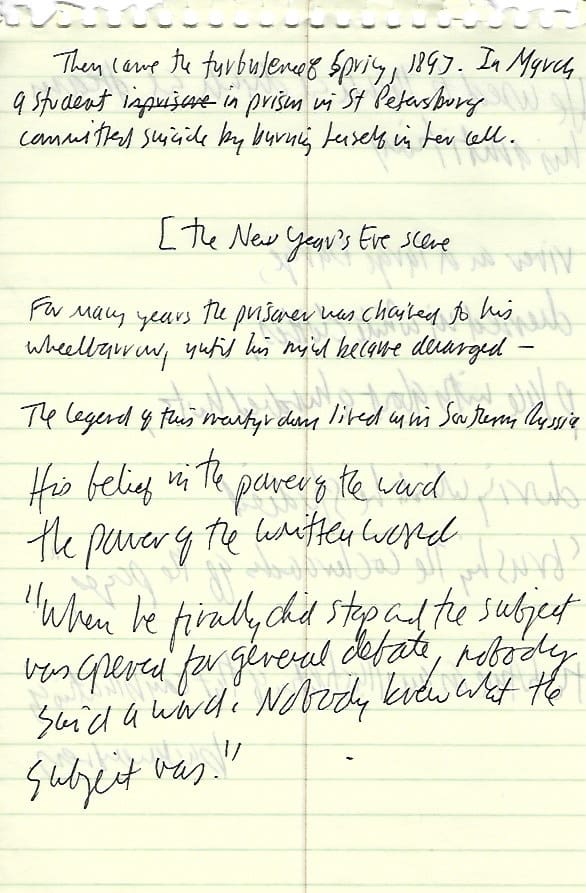 Then came the turbulence of Spring, 1897. In March
a student imprisone in prison in St Petersburg
committed suicide by burning herself in her cell.
[the New Year's Eve scene
For many years the prisoner was chained to his
wheelbarrow, until his mind became deranged —
The legend of this martyrdom lived on in Southern Russia
His belief in the power of the word
the power of the written word
"When he finally did stop and the subject
was opened for general debate, nobody
said a word. Nobody knew what the
subject was."